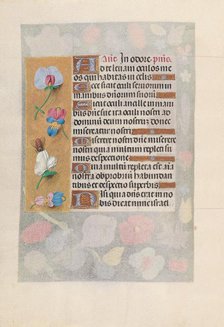 Aue. In odore. ps̄mo.
Ad te leuaui oculos me
os qui habitas in celis
Ecce sicut oculi seruorum in
manibus dñorum suorum
Sicut oculi ancille in manibus
domine sue ita oculi nostri ad
dominum deum nostrum donec
misereatur nostri
Miserere nostri dñe miserere
nostri quia multum repleti su
mus despectione
Quia multum repleta est
anima nostra obprobrium habundan
tibus et despectio superbis
Nisi quia dñs erat in nobis
dicat nunc israel